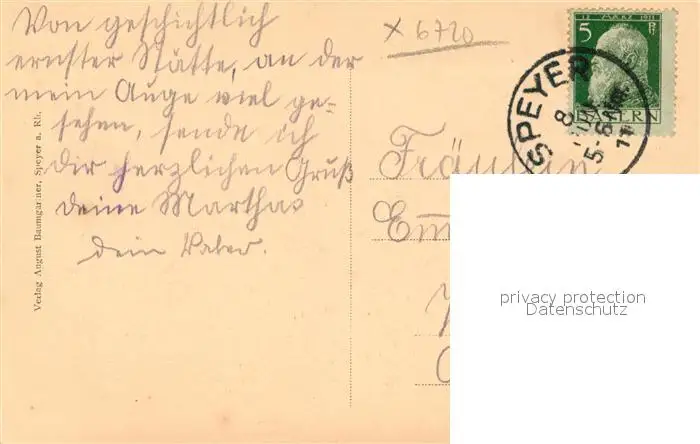 Von geschichtlich
ernster Stätte, an der
mein Auge viel ge-
sehen, sende ich
dir herzlichen Gruß
deine Martha
dein Vater.
Verlag August Baumgärtner, Speyer a. Rh.
x 6720
12 MÄRZ 1911
5
BAYERN
SPEYER
8
5-6
11
Fräulein
privacy protection
Datenschutz